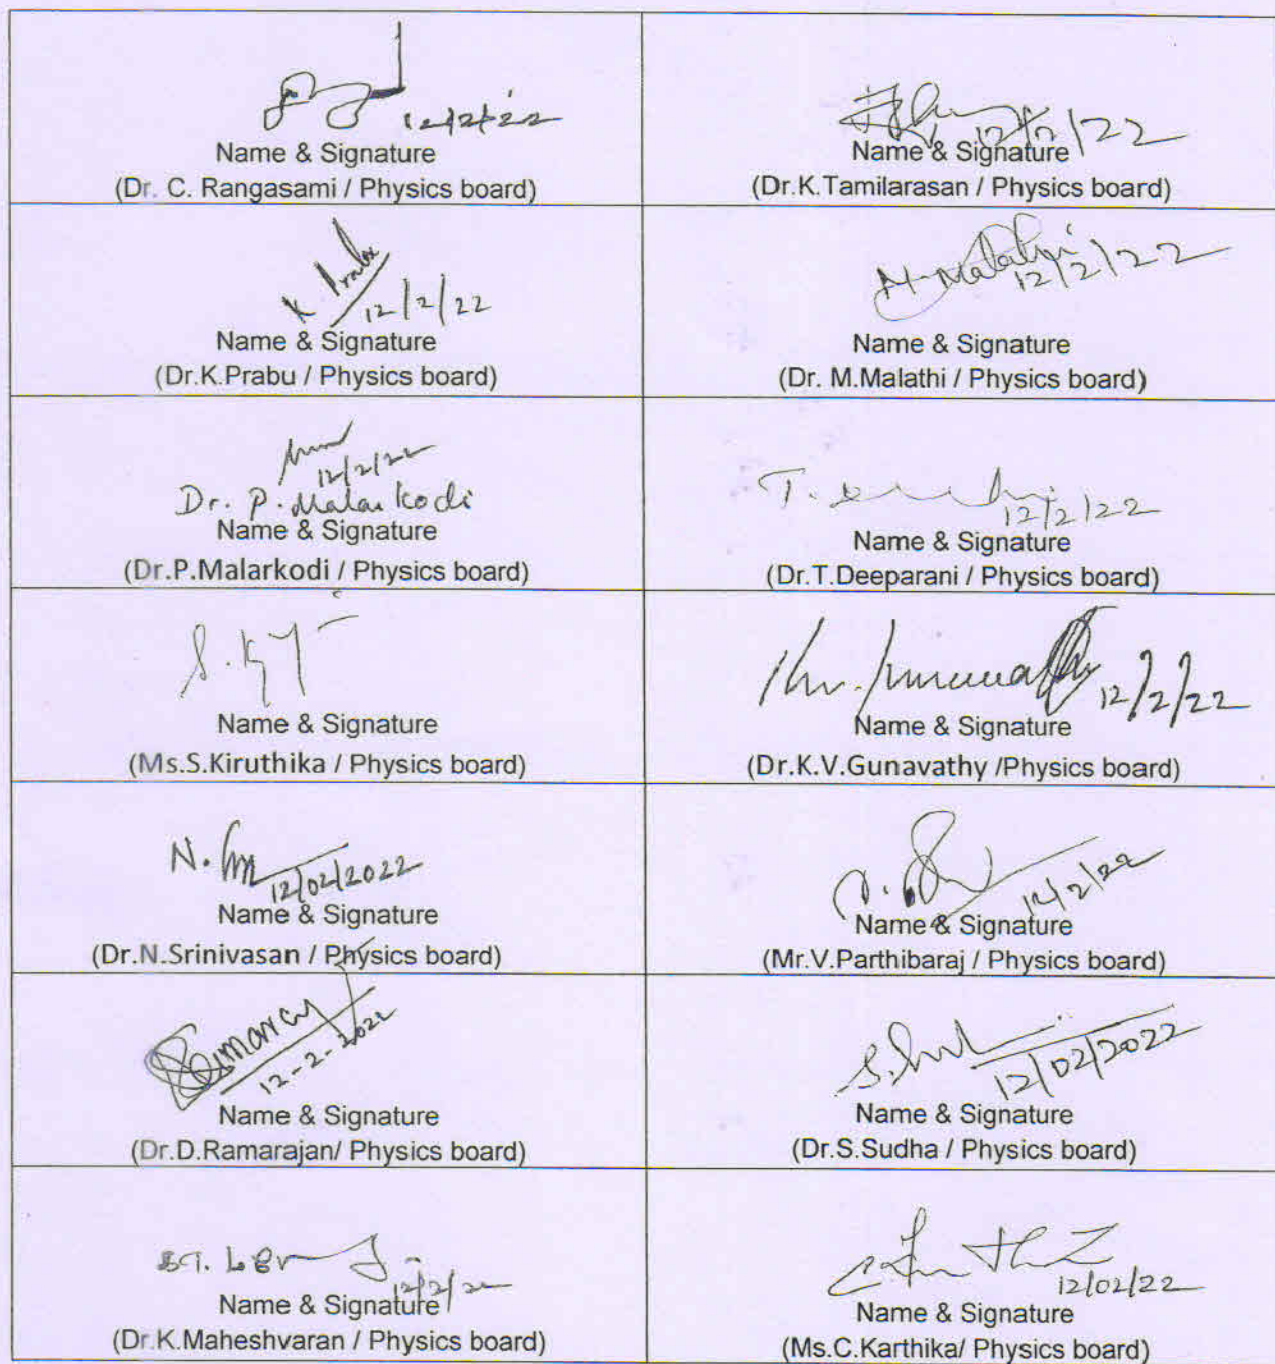 12/2/22
Name & Signature
(Dr. C. Rangasami / Physics board)
12/2/22
Name & Signature
(Dr.K.Tamilarasan / Physics board)
K Prabu
12/2/22
Name & Signature
(Dr.K.Prabu / Physics board)
M. Malathi
12/2/22
Name & Signature
(Dr. M.Malathi / Physics board)
12/2/22
Dr. P. Malarkodi
Name & Signature
(Dr.P.Malarkodi / Physics board)
T.
12/2/22
Name & Signature
(Dr.T.Deeparani / Physics board)
S.
Name & Signature
(Ms.S.Kiruthika / Physics board)
12/2/22
Name & Signature
(Dr.K.V.Gunavathy /Physics board)
N.
12/02/2022
Name & Signature
(Dr.N.Srinivasan / Physics board)
12/2/22
Name & Signature
(Mr.V.Parthibaraj / Physics board)
12-2-2022
Name & Signature
(Dr.D.Ramarajan/ Physics board)
S.
12/02/2022
Name & Signature
(Dr.S.Sudha / Physics board)
12/2/22
Name & Signature
(Dr.K.Maheshvaran / Physics board)
12/02/22
Name & Signature
(Ms.C.Karthika/ Physics board)